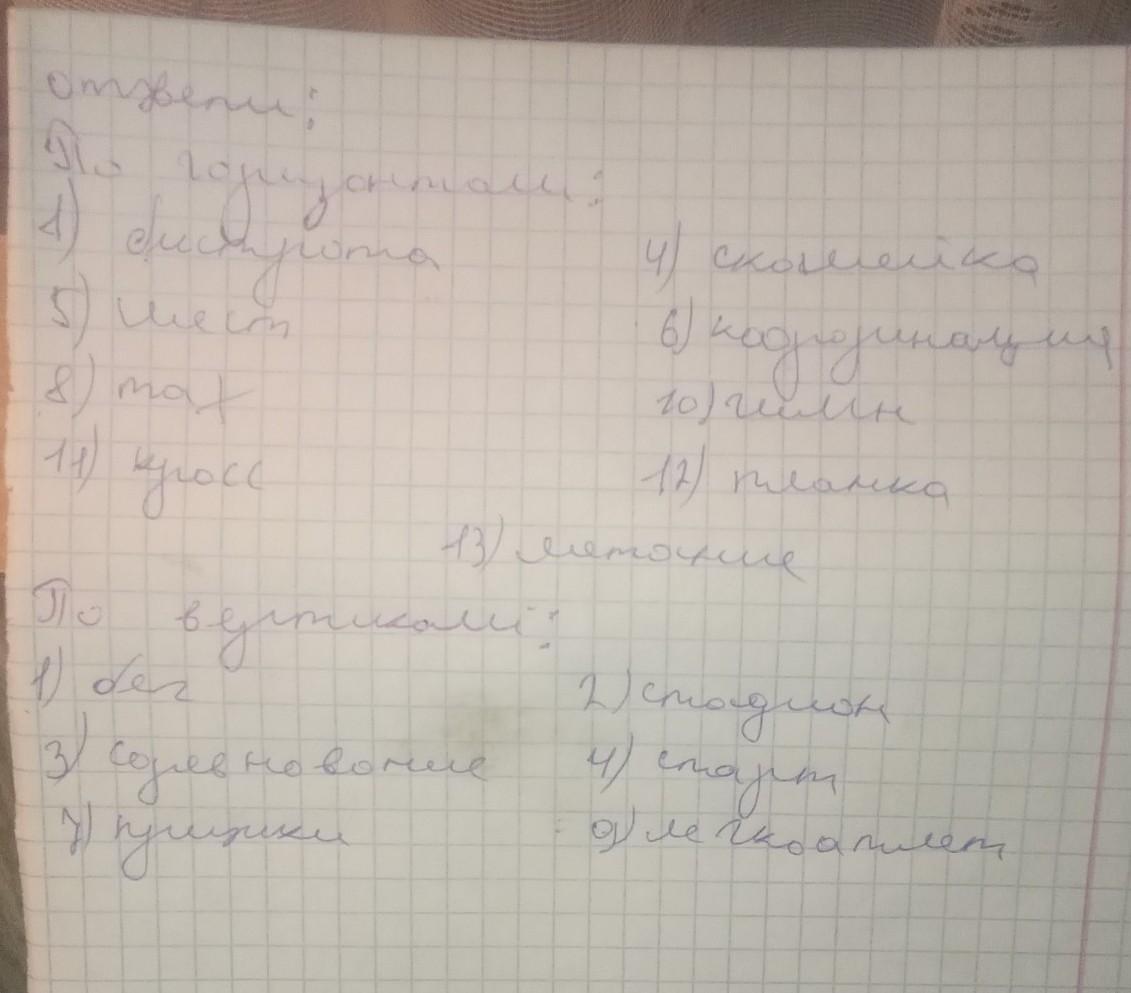 ответы:
По горизонтали:
1) быстрота 4) скамейка
5) шест 6) координация
8) мах 10) гимн
11) кросс 12) планка
13) метание
По вертикали:
1) бег 2) стадион
3) соревнование 4) старт
7) прыжки 9) легкоатлет